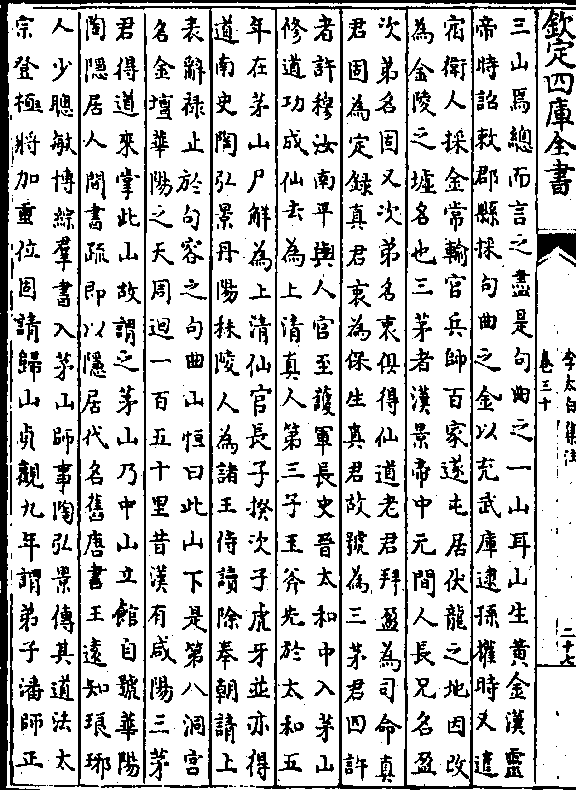 欽定四庫全書
李太白集注
卷三十
二十七
三山爲總而言之盡是句曲之一山耳山生黃金漢靈
帝時詔敕郡縣採句曲之金以充武庫逮孫權時又遣
宿衛人採金常輸官兵師百家遂屯居伏龍之地因改
為金陵之墟名也三茅者漢景帝中元間人長兄名盈
次弟名固又次弟名衷俱得仙道老君拜盈為司命真
君固為定録真君衷為保生真君故號為三茅君四許
者許穆汝南平輿人官至護軍長史晉太和中入茅山
修道功成仙去為上清真人第三子玉斧先於太和五
年在茅山尸解為上清仙官長子揆次子虎牙並亦得
道南史陶弘景丹陽秣陵人為諸王侍讀除奉朝請上
表辭祿止於句容之句曲山恒曰此山下是第八洞宮
名金壇華陽之天周迴一百五十里昔漢有咸陽三茅
君得道來掌此山故謂之茅山乃中山立館自號華陽
陶隱居人間書疏即以隱居代名舊唐書王遠知琅琊
人少聰敏博綜羣書入茅山師事陶弘景傳其道法太
宗登極將加重位固請歸山貞觀九年謂弟子潘師正